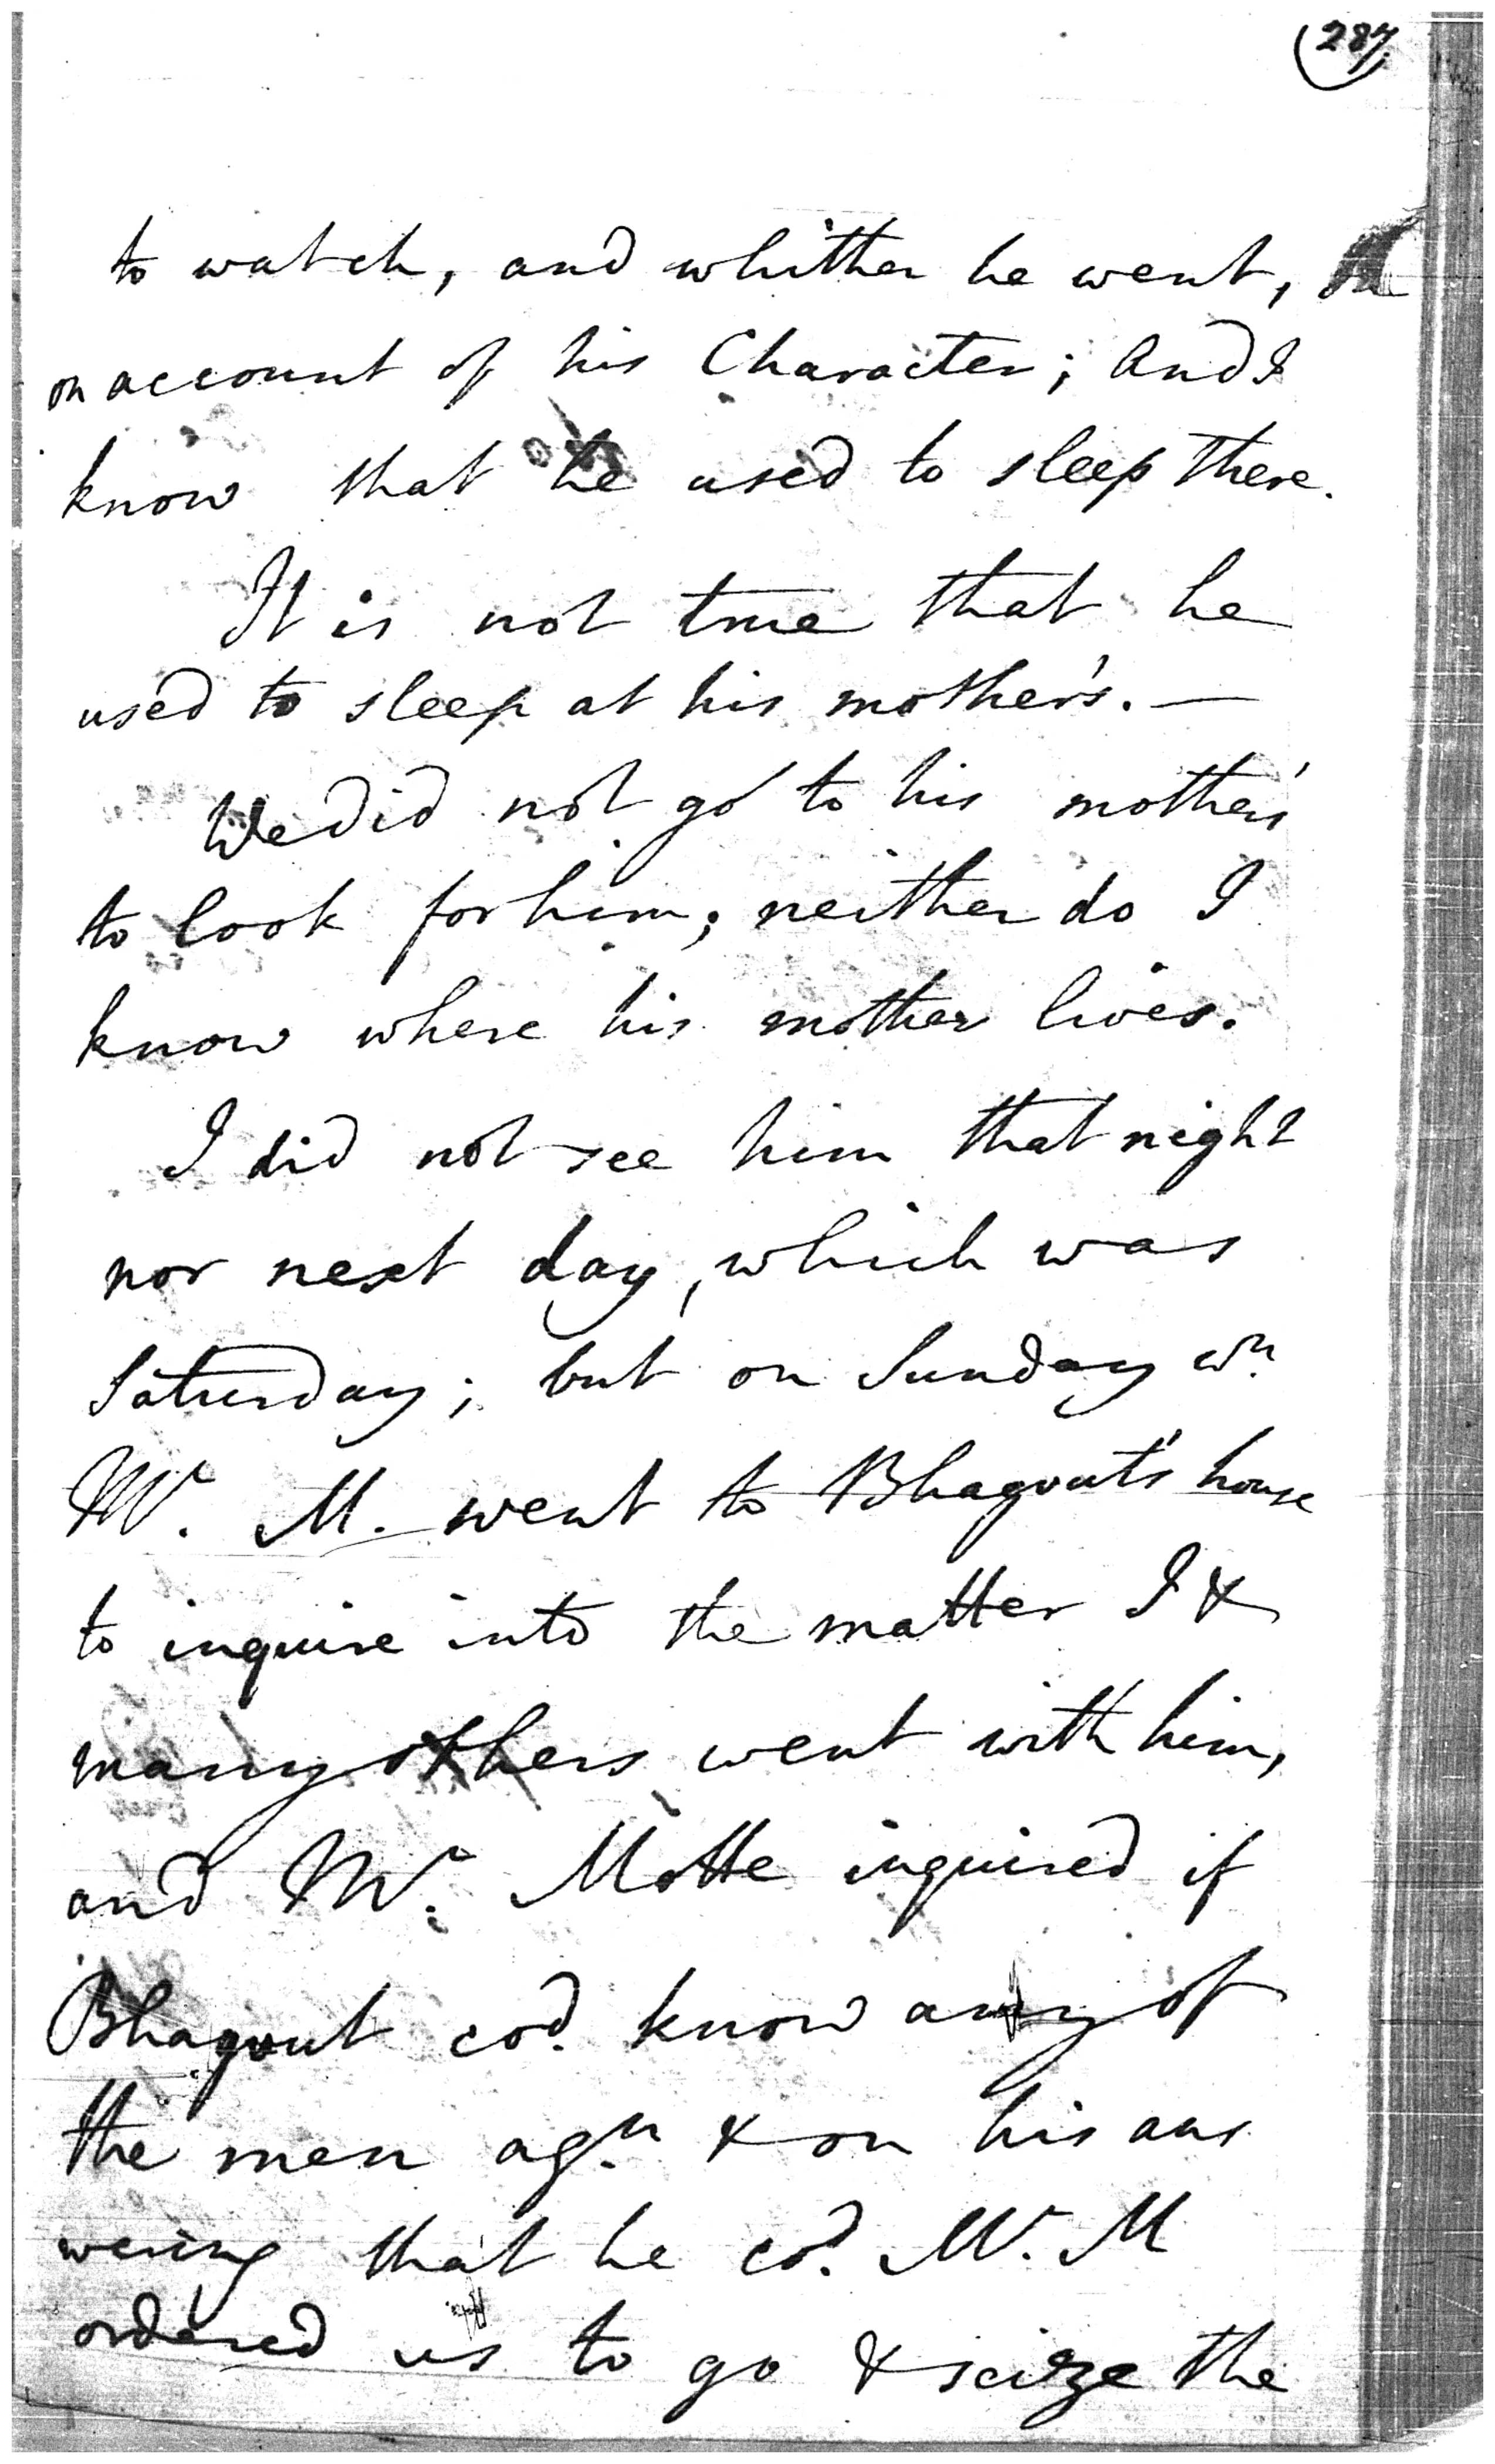 (287.
to watch, and whither he went,
on account of his Character; And I
know that he used to sleep there.
It is not true that he
used to sleep at his mother's. —
We did not go to his mother's
to look for him; neither do I
know where his mother lives.
I did not see him that night
nor next day, which was
Saturday; but on Sunday wn.
Mr. M. went to Bhagout's house
to inquire into the matter I &
many others went with him,
and Mr. Motte inquired if
Bhagout cod. know any of
the men agn. & on his ans
wering that he cod. Mr. M
ordered us to go & seize the